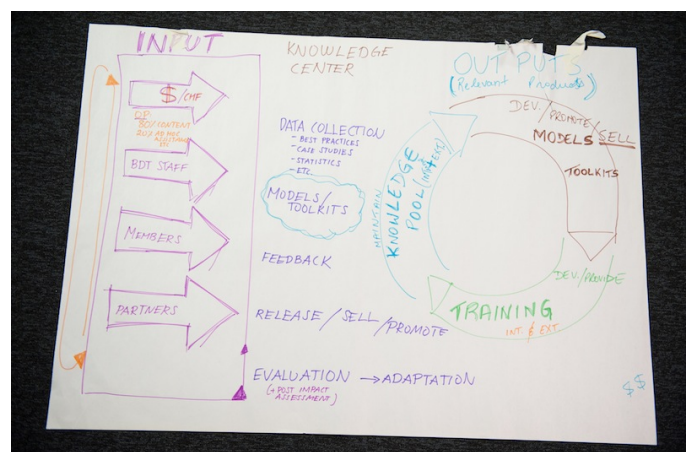 INPUT
$/CHF
OP
80% CONTENT
20% AD HOC
ASSISTANCE
ETC
BDT STAFF
MEMBERS
PARTNERS
KNOWLEDGE
CENTER
DATA COLLECTION
- BEST PRACTICES
- CASE STUDIES
- STATISTICS
- ETC.
MODELS/
TOOLKITS
FEEDBACK
RELEASE / SELL / PROMOTE
EVALUATION → ADAPTATION
(+ POST IMPACT
ASSESSMENT)
OUTPUTS
(Relevant Products)
DEV./PROMOTE/SELL
MODELS
TOOLKITS
DEV./PROVIDE
TRAINING
INT. & EXT.
MAINTAIN
KNOWLEDGE
POOL (INT & EXT)
$$